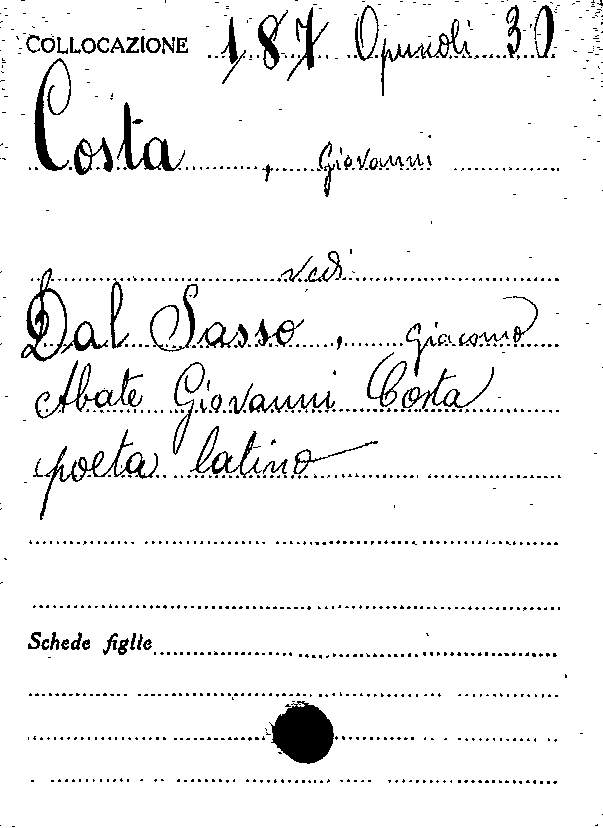 COLLOCAZIONE 187 Opuscoli 30
Costa, Giovanni
vedi
Dal Sasso, Giacomo
Abate Giovanni Costa
poeta latino
Schede figlie